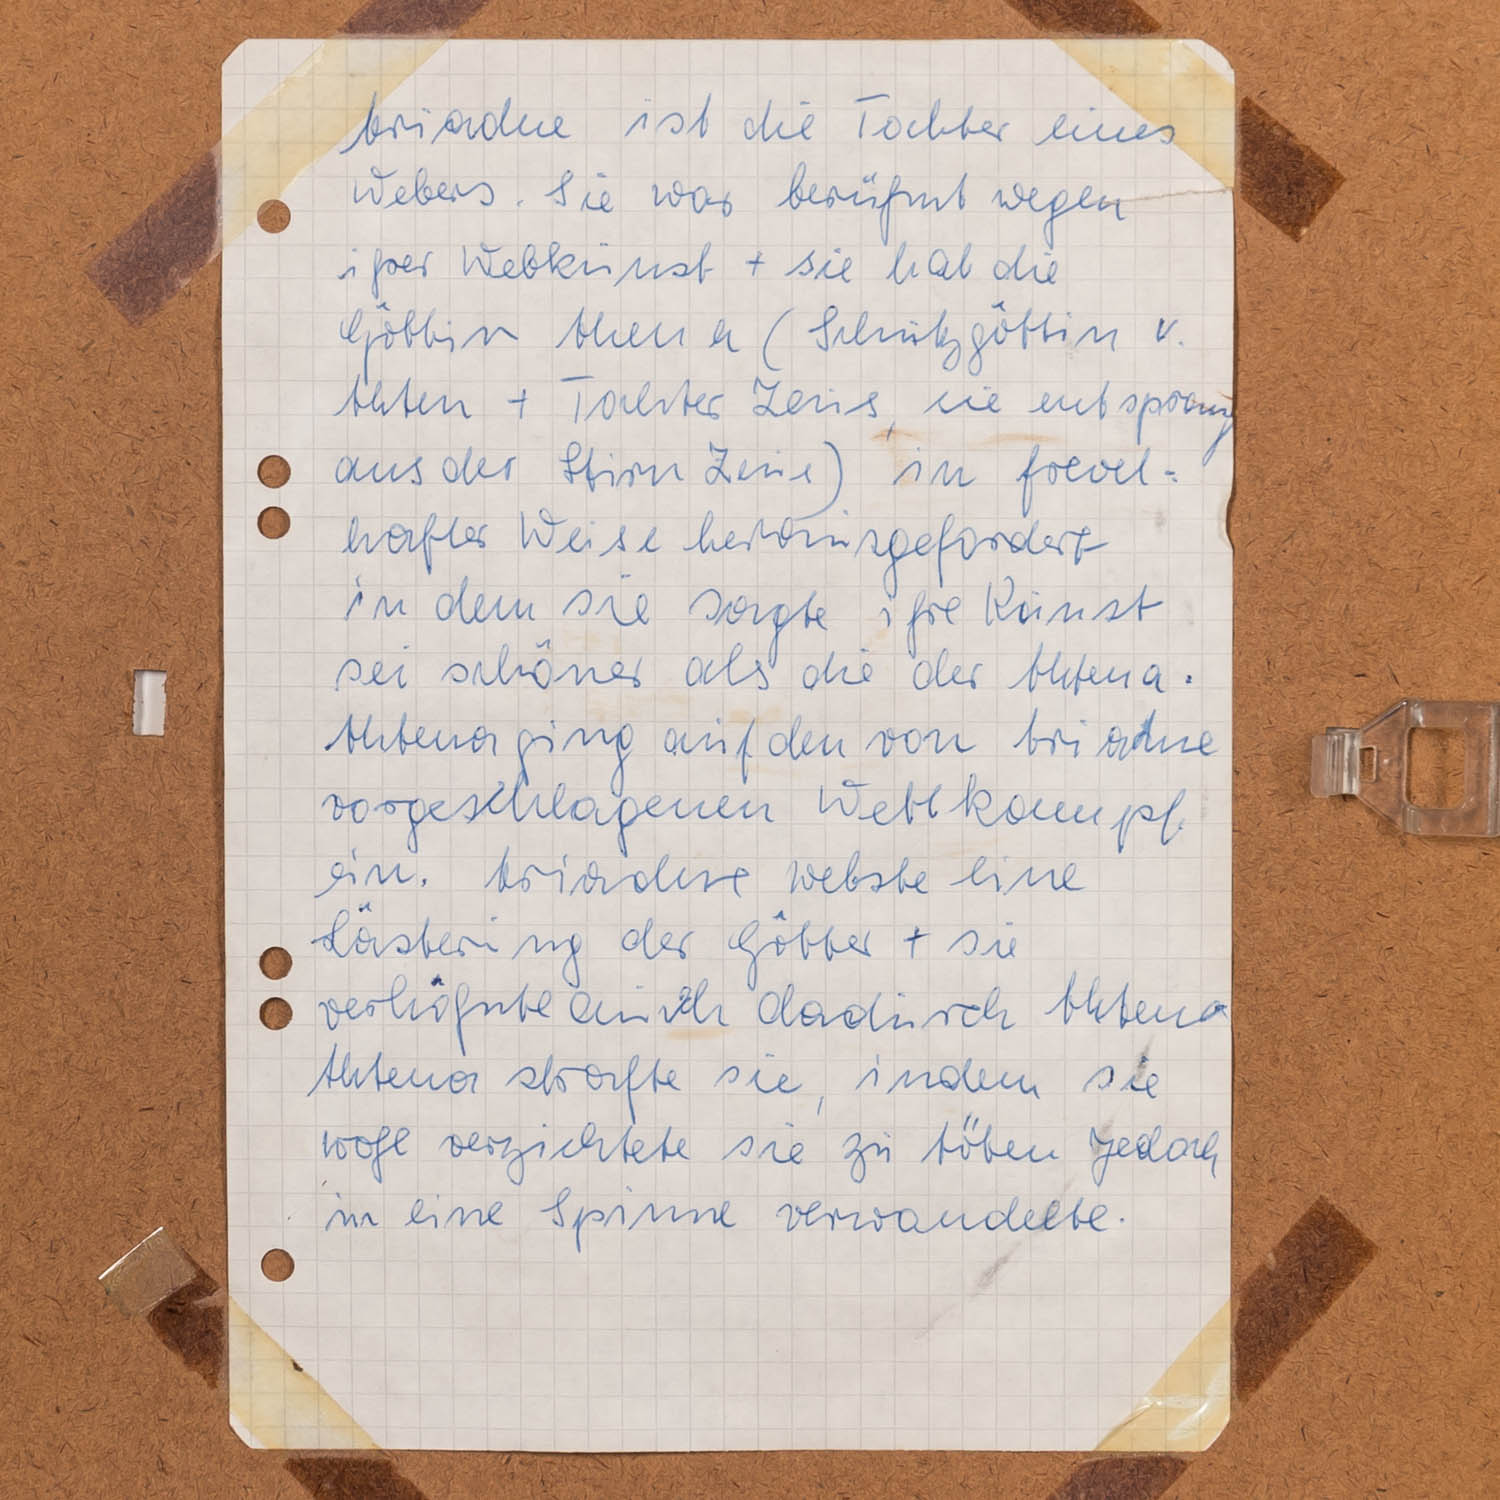 Ariadne ist die Tochter eines
Webers. Sie war berühmt wegen
ihrer Webkunst + sie hat die
Göttin Athena (Schutzgöttin v.
Athen + Tochter Zeus, sie entsprang
aus der Stirn Zeus) in frevel-
hafter Weise herausgefordert
in dem sie sagte ihre Kunst
sei schöner als die der Athena.
Athena ging auf den von Ariadne
vorgeschlagenen Wettkampf
ein. Ariadne webste eine
Lästerung der Götter + sie
verhöhnte auch dadurch Athena
Athena strafte sie, indem sie
wohl verzichtete sie zu töten jedoch
in eine Spinne verwandelte.